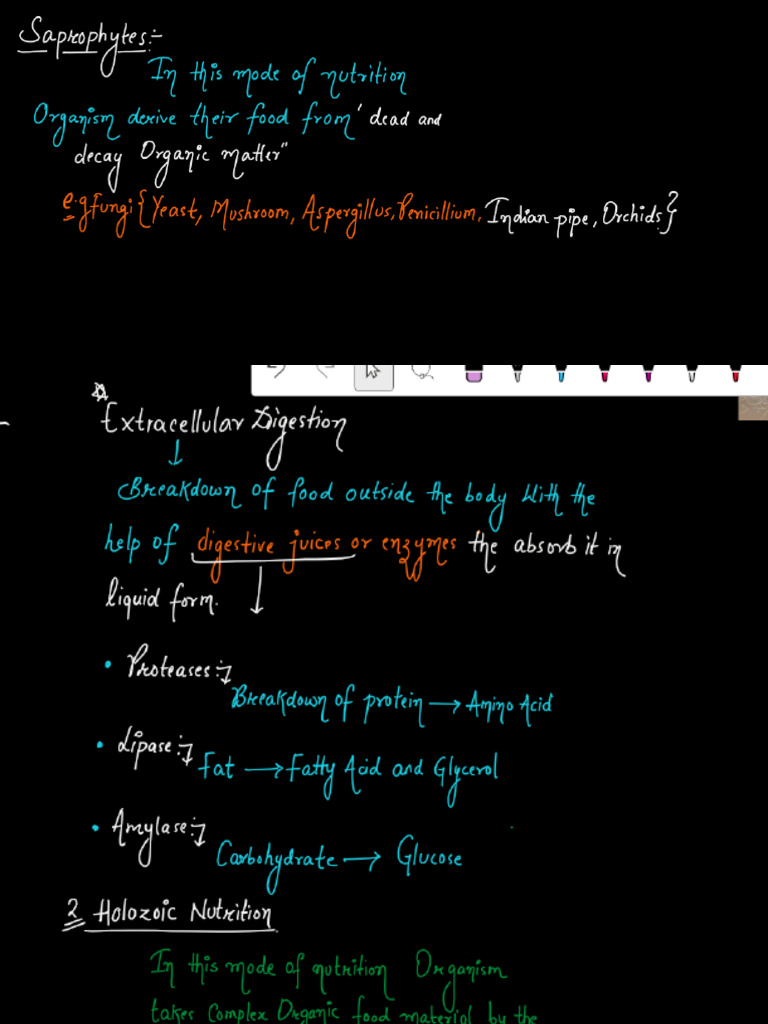 Saprophytes:-
In this mode of nutrition
Organism derive their food from ' dead and
decay Organic matter"
e.g Fungi { Yeast, Mushroom, Aspergillus, Penicillium, Indian pipe, Orchids }
Extracellular Digestion
↓
Breakdown of food outside the body With the
help of digestive juices or enzymes the absorb it in
liquid form. ↓
• Proteases :→
Breakdown of protein → Amino Acid
• Lipase :→
Fat → Fatty Acid and Glycerol
• Amylase :→
Carbohydrate → Glucose
2 Holozoic Nutrition
In this mode of nutrition Organism
takes Complex Organic food material by the